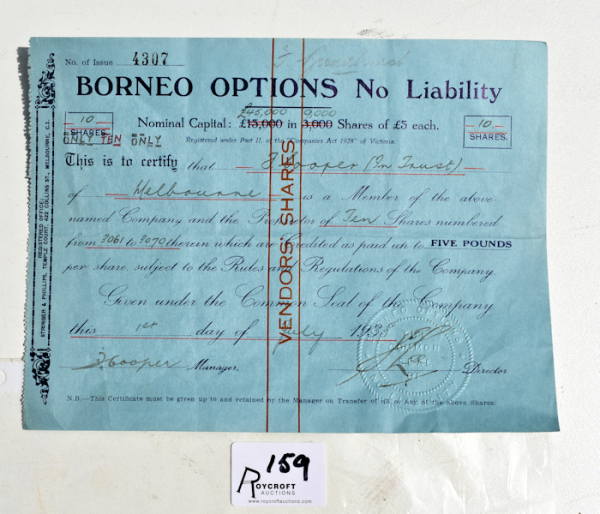 No. of Issue 4307
BORNEO OPTIONS No Liability
£45,000 9,000
10 SHARES. Nominal Capital: £15,000 in 3,000 Shares of £5 each. 10 SHARES.
ONLY TEN ONLY Registered under Part II. of the "Companies Act 1928" of Victoria.
This is to certify that Cooper (In Trust)
of Melbourne is a Member of the above
named Company and the Proprietor of Ten Shares numbered
from 3061 to 3070 therein which are Credited as paid up to FIVE POUNDS
per share, subject to the Rules and Regulations of the Company.
Given under the Common Seal of the Company
this 1st day of July 193
Cooper Manager. Director
N.B.—This Certificate must be given up to and retained by the Manager on Transfer of all or Any of the above Shares.
VENDORS SHARES
REGISTERED OFFICE:
STRINGER & PHILLIPS, TEMPLE COURT, 422 COLLINS ST., MELBOURNE, C.1.
159
ROYCROFT
AUCTIONS
www.roycroftauctions.com